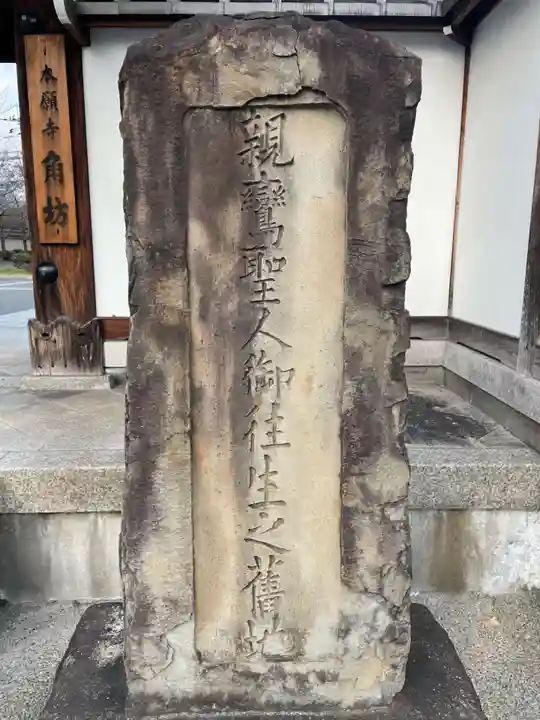 親鸞聖人御往生之舊地
本願寺角坊